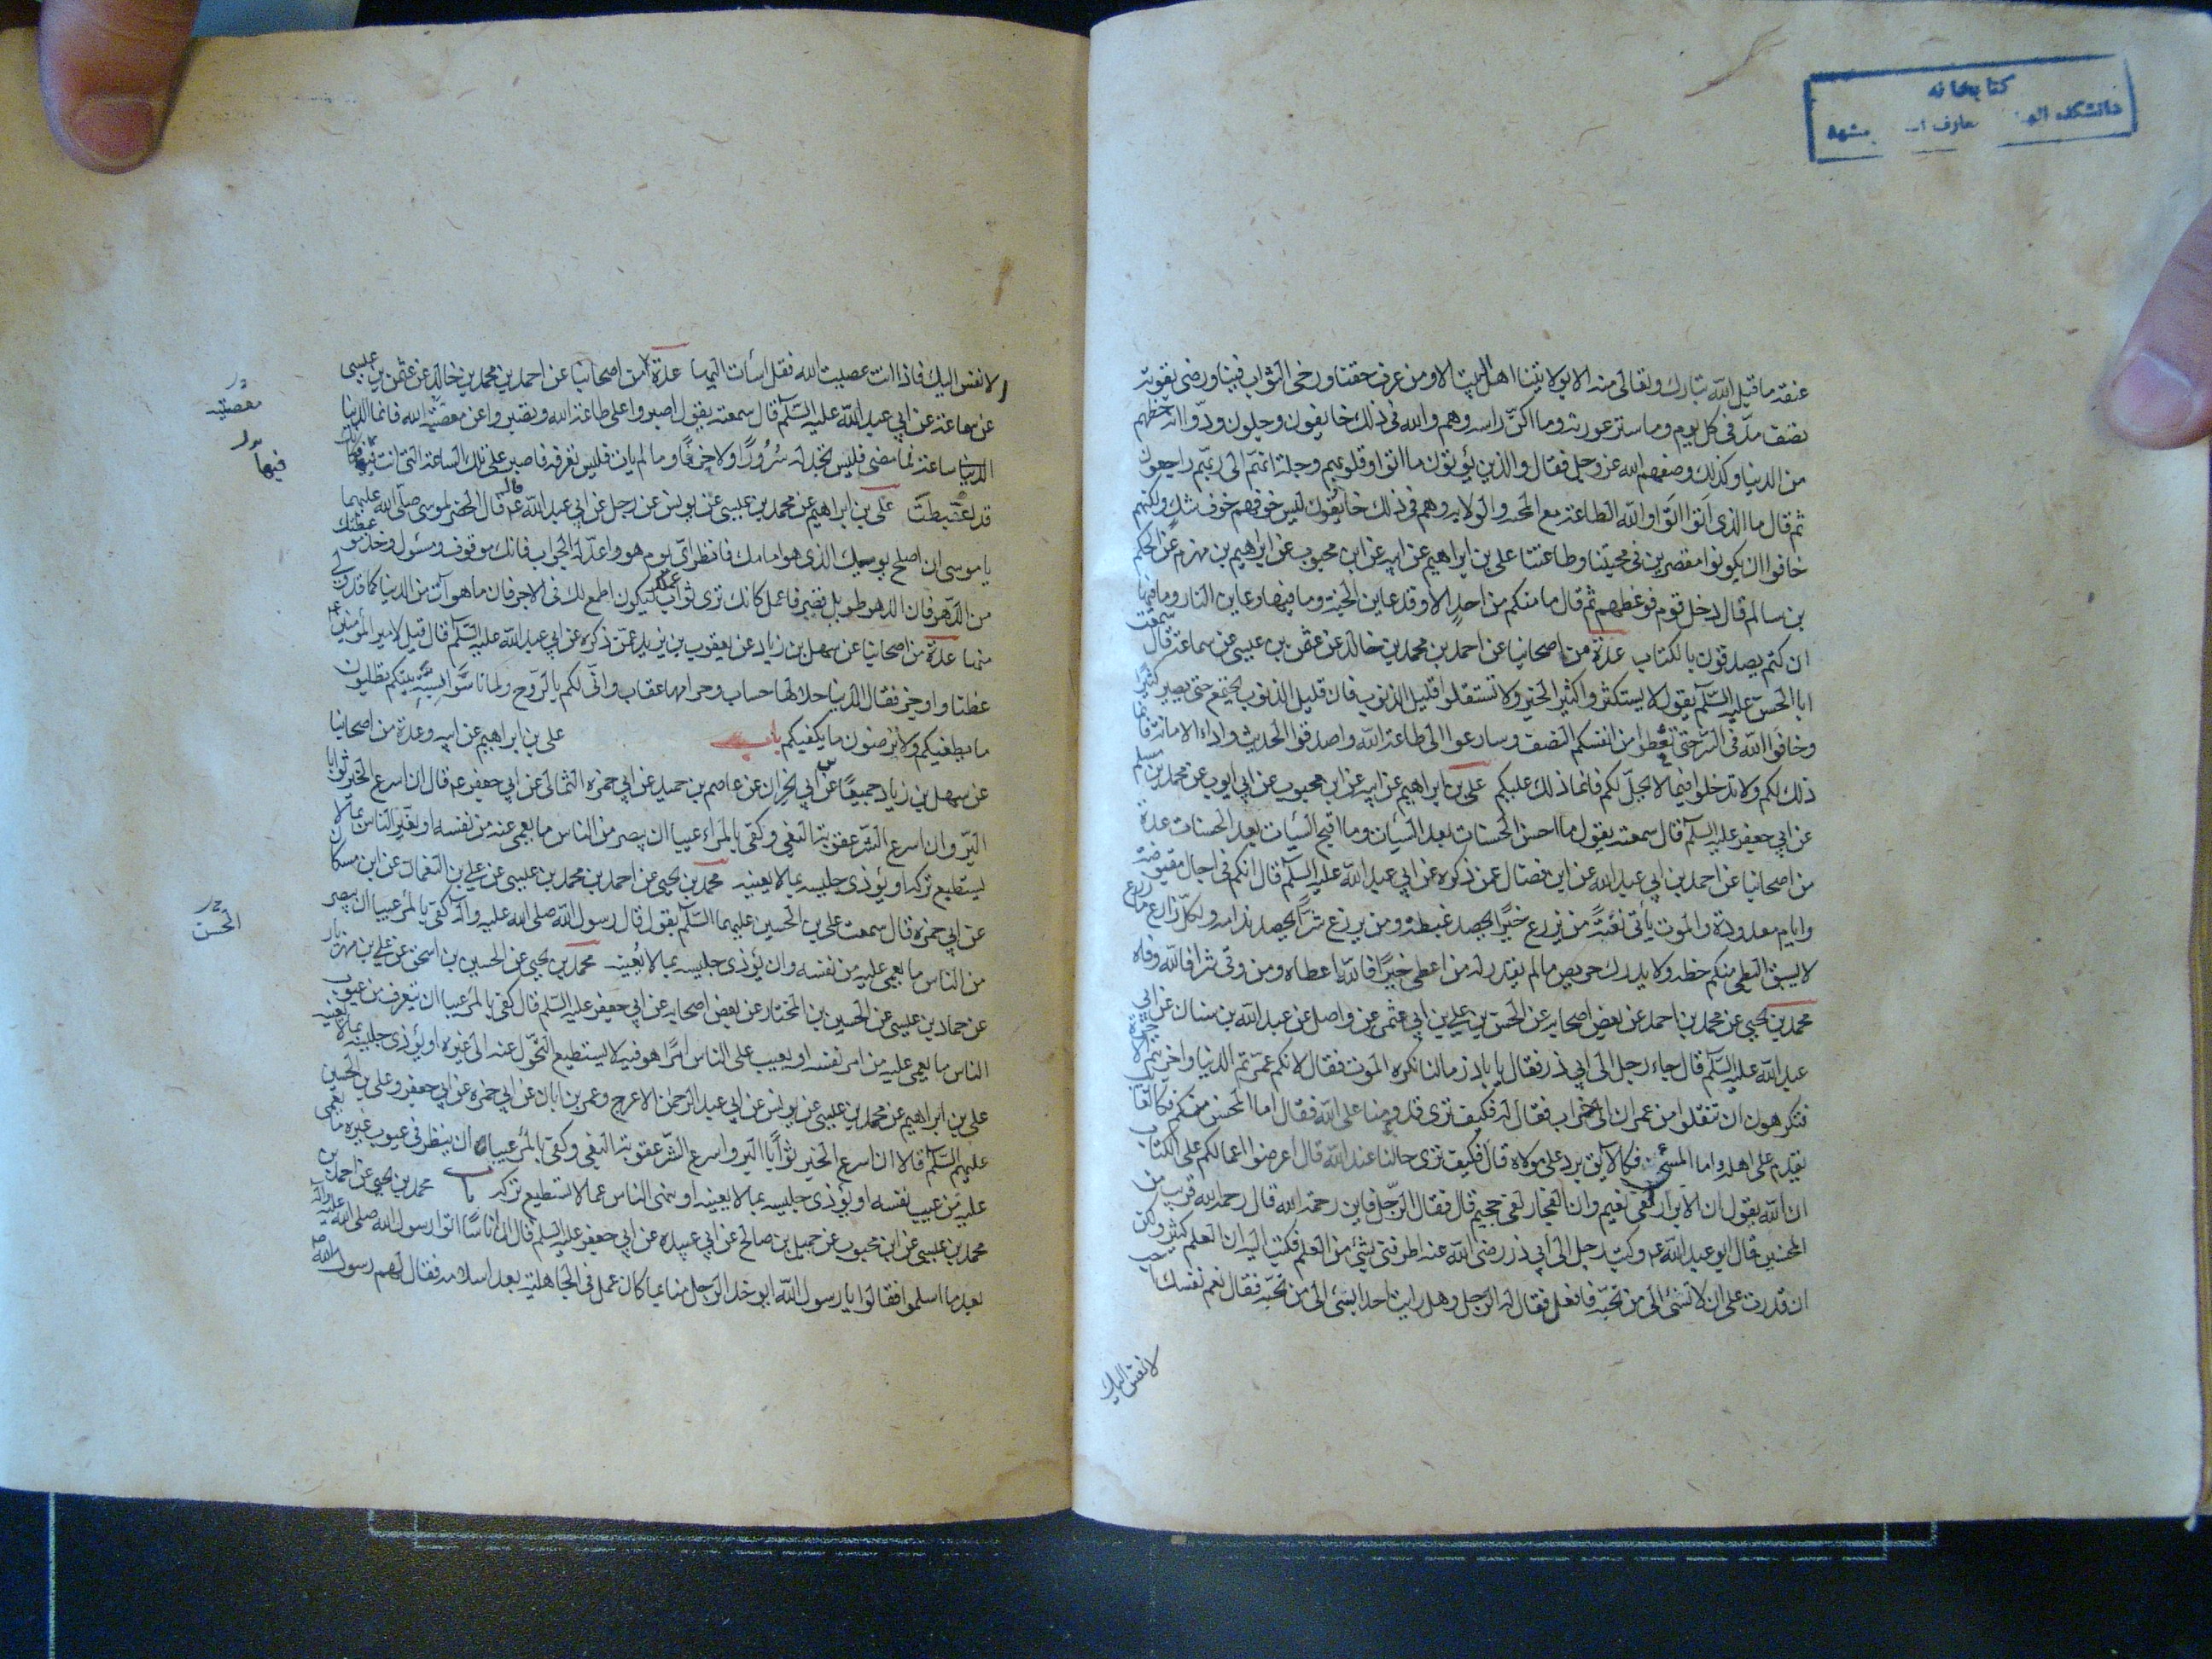 كتابخانه
دانشكده معارف مشهد
عنقه ما قبل الله تبارك وتعالى منه الا بولايتنا اهل البيت الا ومن عرف حقنا ورجى الثواب فينا ورضى بقوته
نصف مد فى كل يوم وما ستر عورته وما اكن راسه وهم والله فى ذلك خايفون وجلون ودوا انه حظهم
من الدنيا وكذلك وصفهم الله عز وجل فقال والذين يؤتون ما اتوا وقلوبهم وجلة انهم الى ربهم راجعون
ثم قال ما الذى اتوا اتوا والله الطاعة مع المحبة والولاية وهم فى ذلك خائفون ليس خوفهم خوف شك ولكنهم
خافوا ان يكونوا مقصرين فى محبتنا وطاعتنا على بن ابراهيم عن ابيه عن ابن محبوب عن ابراهيم بن مهزم عن الحكم
بن سالم قال دخل قوم فوعظهم ثم قال ما منكم من احد الا وقد عاين الجنة وما فيها وعاين النار وما فيها
ان كنتم يصدقون بالكتاب عدة من اصحابنا عن احمد بن محمد بن خالد عن عثمن بن عيسى عن سماعة قال سمعت
ابا الحسن عليه السلم يقول لا يستكثروا كثير الخير ولا تستقلوا قليل الذنوب فان قليل الذنوب يجتمع حتى يصير كثيرا
وخافوا الله فى السر حتى تعطوا من انفسكم النصف وسارعوا الى طاعة الله واصدقوا الحديث واداء الامانة فانما
ذلك لكم ولا تدخلوا فيما لا يحل لكم فانما ذلك عليكم على بن ابراهيم عن ابيه عن ابن محبوب عن ابى ايوب عن محمد بن مسلم
عن ابى جعفر عليه السلم قال سمعته يقول ما احسن الحسنات بعد السيئات وما اقبح السيئات بعد الحسنات عدة
من اصحابنا عن احمد بن ابى عبد الله عن ابن فضال عمن ذكره عن ابى عبد الله عليه السلم قال انكم فى اجال مقبوضة
وايام معدودة والموت يأتى بغتة من يزرع خيرا يحصد غبطة ومن يزرع شرا يحصد ندامة ولكل زارع ما زرع
لا يسبق البطى منكم حظه ولا يدرك حريص ما لم يقدر له من اعطى خيرا فالله اعطاه ومن وقى شرا فالله وقاه
محمد بن يحيى عن محمد بن احمد عن بعض اصحابه عن الحسن بن على بن ابى عثمن عن واصل عن عبد الله بن سنان عن ابى
عبد الله عليه السلم قال جاء رجل الى ابى ذر فقال يا باذر مالنا نكره الموت فقال لانكم عمرتم الدنيا واخربتم الاخرة
فتكرهون ان تنقلوا من عمران الى خراب فقال له فكيف ترى قدومنا على الله فقال اما المحسن منكم فكالغائب
يقدم على اهله واما المسئ فكالآبق يرد على مولاه قال فكيف ترى حالنا عند الله قال اعرضوا اعمالكم على الكتاب
ان الله يقول ان الابرار لفى نعيم وان الفجار لفى جحيم قال فقال الرجل فاين رحمة الله قال رحمة الله قريب من
المحسنين قال ابو عبد الله ع وكتب رجل الى ابى ذر رضى الله عنه اطرفنى بشئ من العلم فكتب اليه ان العلم كثير ولكن
ان قدرت على ان لا تسئ الى من تحبه فافعل فقال له الرجل وهل رايت احدا يسئ الى من يحبه فقال نعم نفسك احب
لانفس اليك
الانفس اليك فاذا انت عصيت الله فقد اسأت اليها عدة من اصحابنا عن احمد بن محمد بن خالد عن عثمن بن عيسى
عن سماعة عن ابى عبد الله عليه السلم قال سمعته يقول اصبروا على طاعة الله وتصبروا عن معصية الله فانما الدنيا
الدنيا ساعة فما مضى فليس تجد له سرورا ولا حزنا وما لم يات فليس تعرفه فاصبر على تلك الساعة التى انت فيها فكانك
قد اغتبطت على بن ابراهيم عن محمد بن عيسى عن يونس عن رجل عن ابى عبد الله ع قال قال الخضر لموسى صلى الله عليهما
يا موسى ان اصلح يوميك الذى هو امامك فانظر اى يوم هو واعد له الجواب فانك موقوف ومسئول وخذ موعظتك
من الدهر فان الدهر طويل قصير فاعمل كانك ترى ثواب عملك ليكون اطمع لك فى الاجر فان ما هو آت من الدنيا كما قد ولى
منها عدة من اصحابنا عن سهل بن زياد عن يعقوب بن يزيد عمن ذكره عن ابى عبد الله عليه السلم قال قيل لامير المؤمنين ع
عظنا واوجز فقال الدنيا حلالها حساب وحرامها عقاب وانى لكم بالروح ولما تاسوا بسنة نبيكم تطلبون
ما يطغيكم ولا ترضون ما يكفيكم باب على بن ابراهيم عن ابيه وعدة من اصحابنا
عن سهل بن زياد جميعا عن ابن ابى نجران عن عاصم بن حميد عن ابى حمزة الثمالى عن ابى جعفر ع قال ان اسرع الخير ثوابا
البر وان اسرع الشر عقوبة البغى وكفى بالمرء عيبا ان يبصر من الناس ما يعمى عنه من نفسه او يعير الناس بما لا
يستطيع تركه او يؤذى جليسه بما لا يعنيه محمد بن يحيى عن احمد بن محمد بن عيسى عن على بن النعمان عن ابن مسكان
عن ابى حمزة قال سمعت على بن الحسين عليهما السلم يقول قال رسول الله صلى الله عليه وآله كفى بالمرء عيبا ان يبصر
من الناس ما يعمى عليه من نفسه وان يؤذى جليسه بما لا يعنيه محمد بن يحيى عن الحسين بن اسحق عن على بن مهزيار
عن حماد بن عيسى عن الحسين بن المختار عن بعض اصحابه عن ابى جعفر عليه السلم قال كفى بالمرء عيبا ان يتعرف من عيوب
الناس ما يعمى عليه من امر نفسه او يعيب على الناس امرا هو فيه لا يستطيع التحول عنه الى غيره او يؤذى جليسه بما لا يعنيه
على بن ابراهيم عن محمد بن عيسى عن يونس عن ابى عبد الرحمن الاعرج وعمر بن ابان عن ابى حمزة عن ابى جعفر وعلى بن الحسين
عليهم السلم قالا ان اسرع الخير ثوابا البر واسرع الشر عقوبة البغى وكفى بالمرء عيبا ان ينظر فى عيوب غيره ما يعمى
عليه من عيب نفسه او يؤذى جليسه بما لا يعنيه او ينهى الناس عما لا استطيع تركه باب محمد بن يحيى عن احمد بن
محمد بن عيسى عن ابن محبوب عن جميل بن صالح عن ابى عبيدة عن ابى جعفر عليه السلم قال ان اناسا اتوا رسول الله صلى الله عليه وآله
بعد ما اسلموا فقالوا يا رسول الله ايوخذ الرجل منا بما كان عمل فى الجاهلية بعد اسلامه فقال لهم رسول الله ص
معصيته
فيها
الحسن